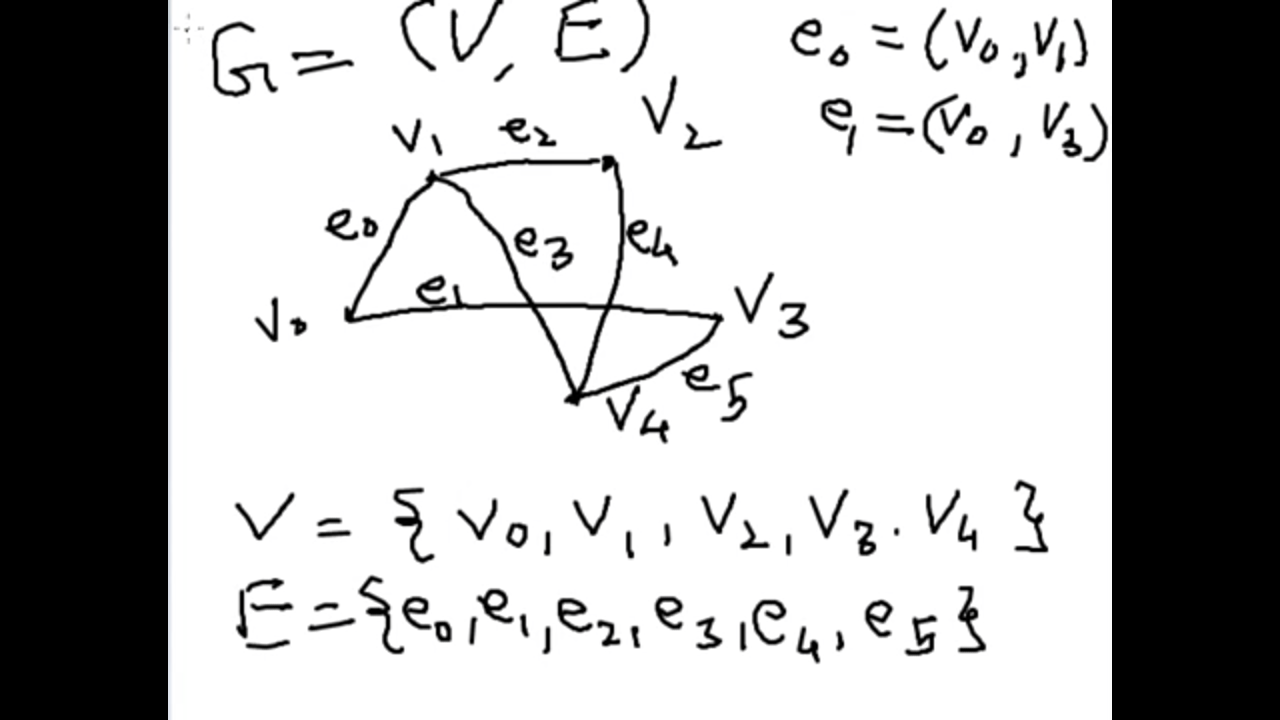 G = (V, E)
e0 = (v0, v1)
e1 = (v0, v3)
v1
e2
V2
e0
e3
e4
e1
v0
V3
e5
V4
V = { v0, v1, v2, v3. v4 }
E = {e0, e1, e2, e3, e4, e5}